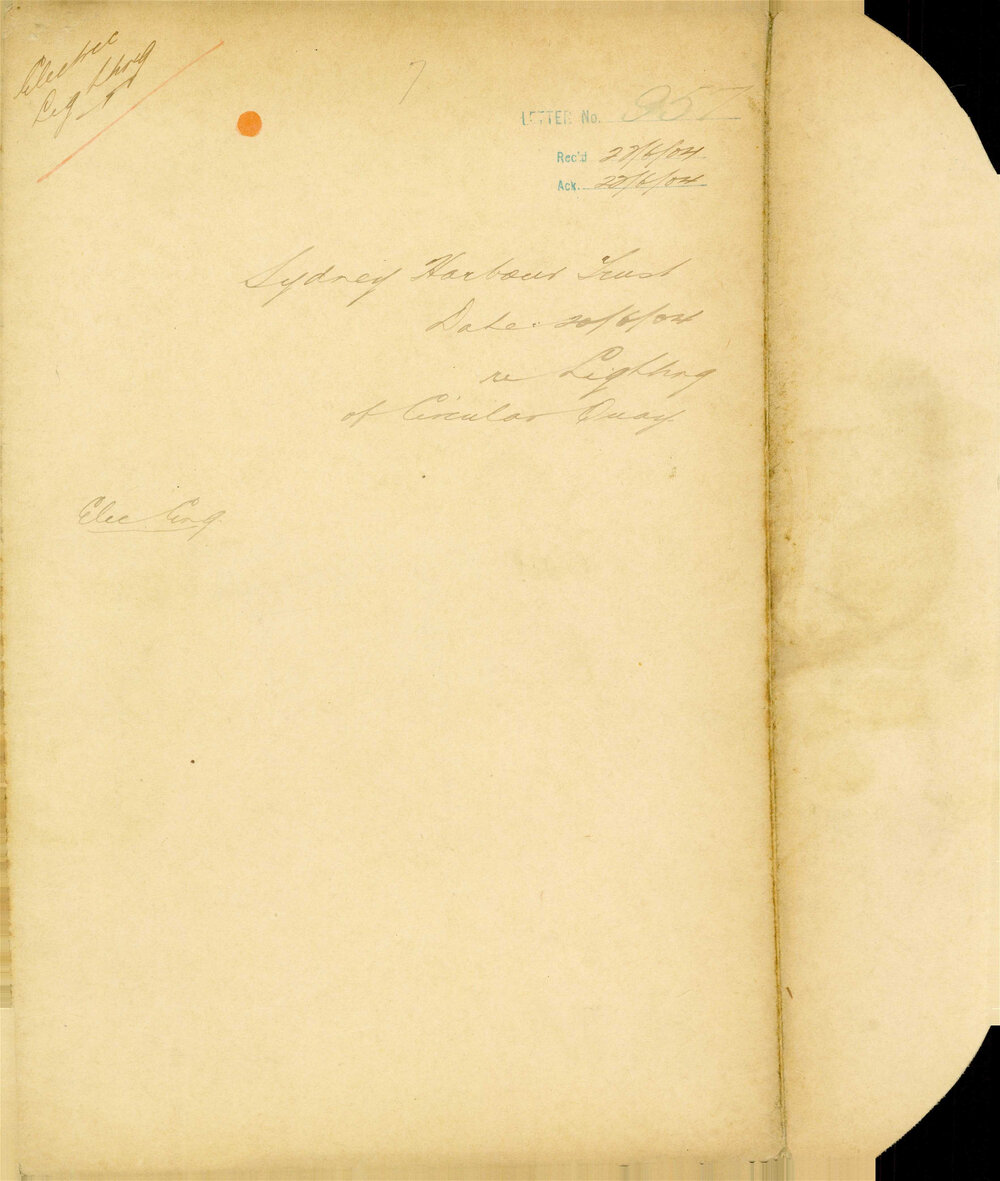 Electric
Lighting
7
LETTER No. 357
Rec'd 22/6/04
Ack. 22/6/04
Sydney Harbour Trust
Date: 20/6/04
re Lighting
of Circular Quay
Elec Eng